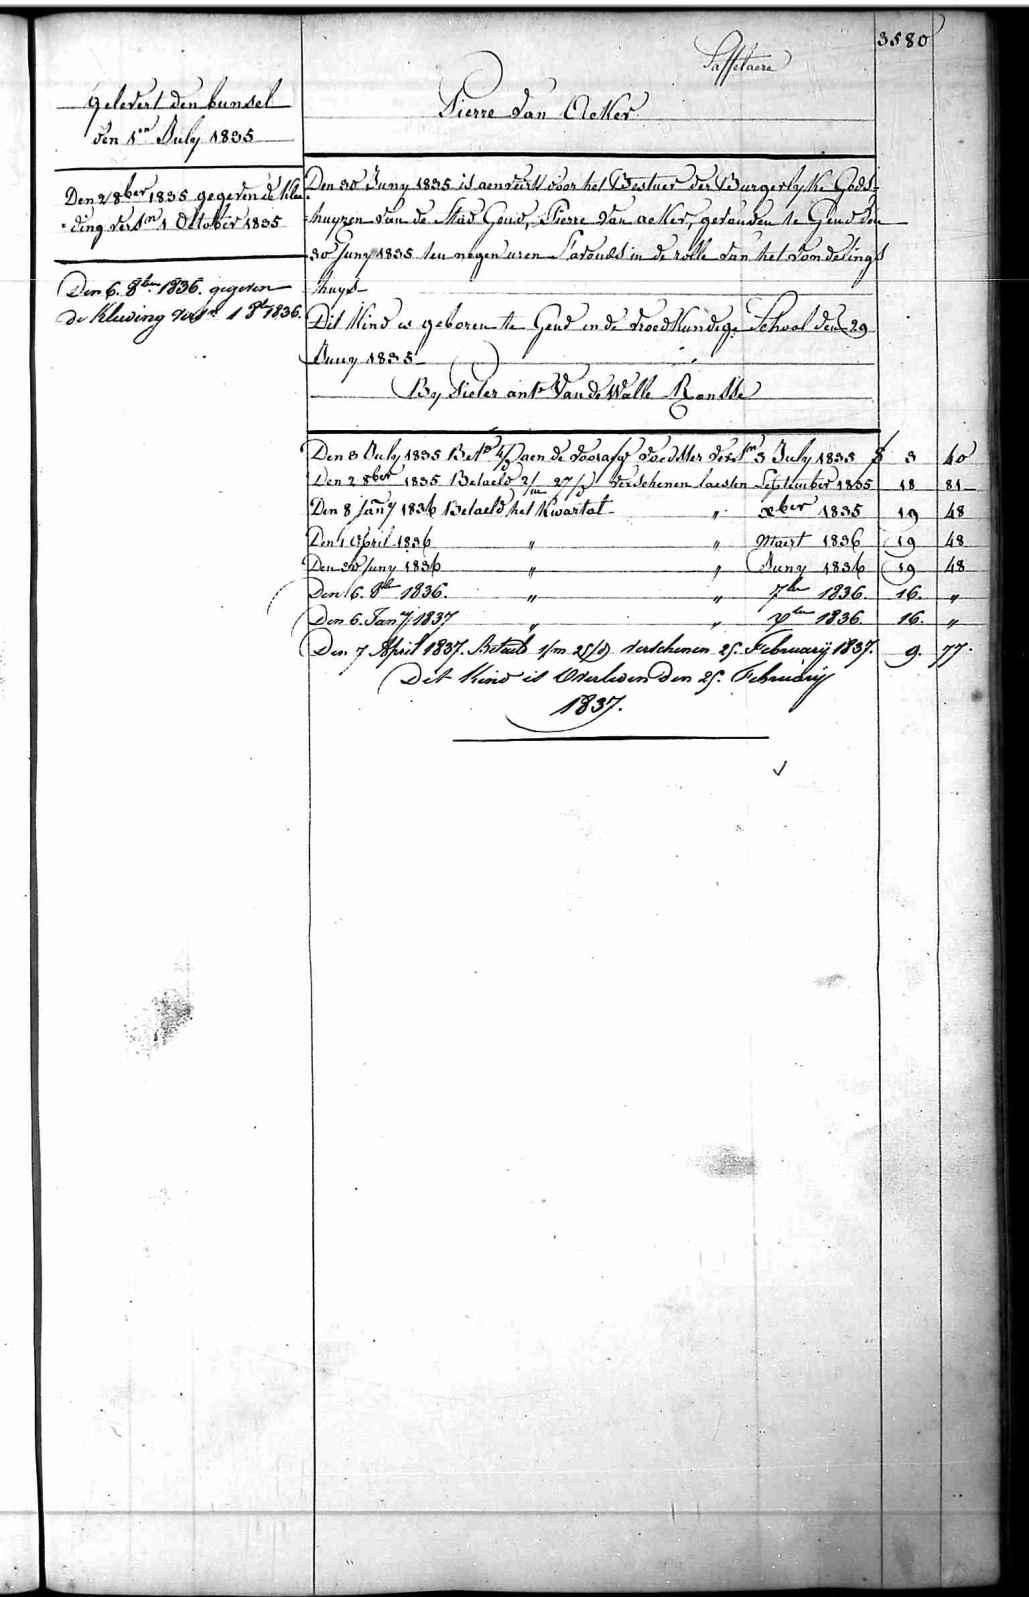 3580
Saffelaere
Pierre Van Acker
gelevert den bunsel
den 1en July 1835
Den 2 8ber 1835 gegeven de Klee
=ding verstn 1 October 1835
Den 6. 8ber 1836. gegeven
de Kleeding verstn 1 8ber 1836.
Den 30 Juny 1835 is aenveirt voor het Bestuer der Burgerlyke Gods=
=huyzen van de Stad Gend, Pierre Van acker, gevonden te Gend den
30 Juny 1835 ten negen uren s'avonds in de rolle van het vondelings
huys
Dit Kind is geboren te Gend in de vroedkundige School den 29
Juny 1835
By Pieter ante Van de Walle Ronsse
Den 8 July 1835 Betd 4/d aen de voorafg voedster verstn 3 July 1835 f 3 40
Den 2 8ber 1835 Betaeld 2/m 27/d verschenen laesten September 1835 18 81
Den 8 Jany 1836 Betaeld het Kwartal " xber 1835 19 48
Den 1 April 1836 " " Maert 1836 19 48
Den 30 Juny 1836 " " Juny 1836 19 48
Den 6. 8ber 1836. " " 7ber 1836. 16. "
Den 6. Jany 1837 " " xber 1836 16. "
Den 7 April 1837. Betaeld 1/m 25/d verschenen 25. February 1837. 9. 77.
Dit Kind is Overleden den 25. February
1837.